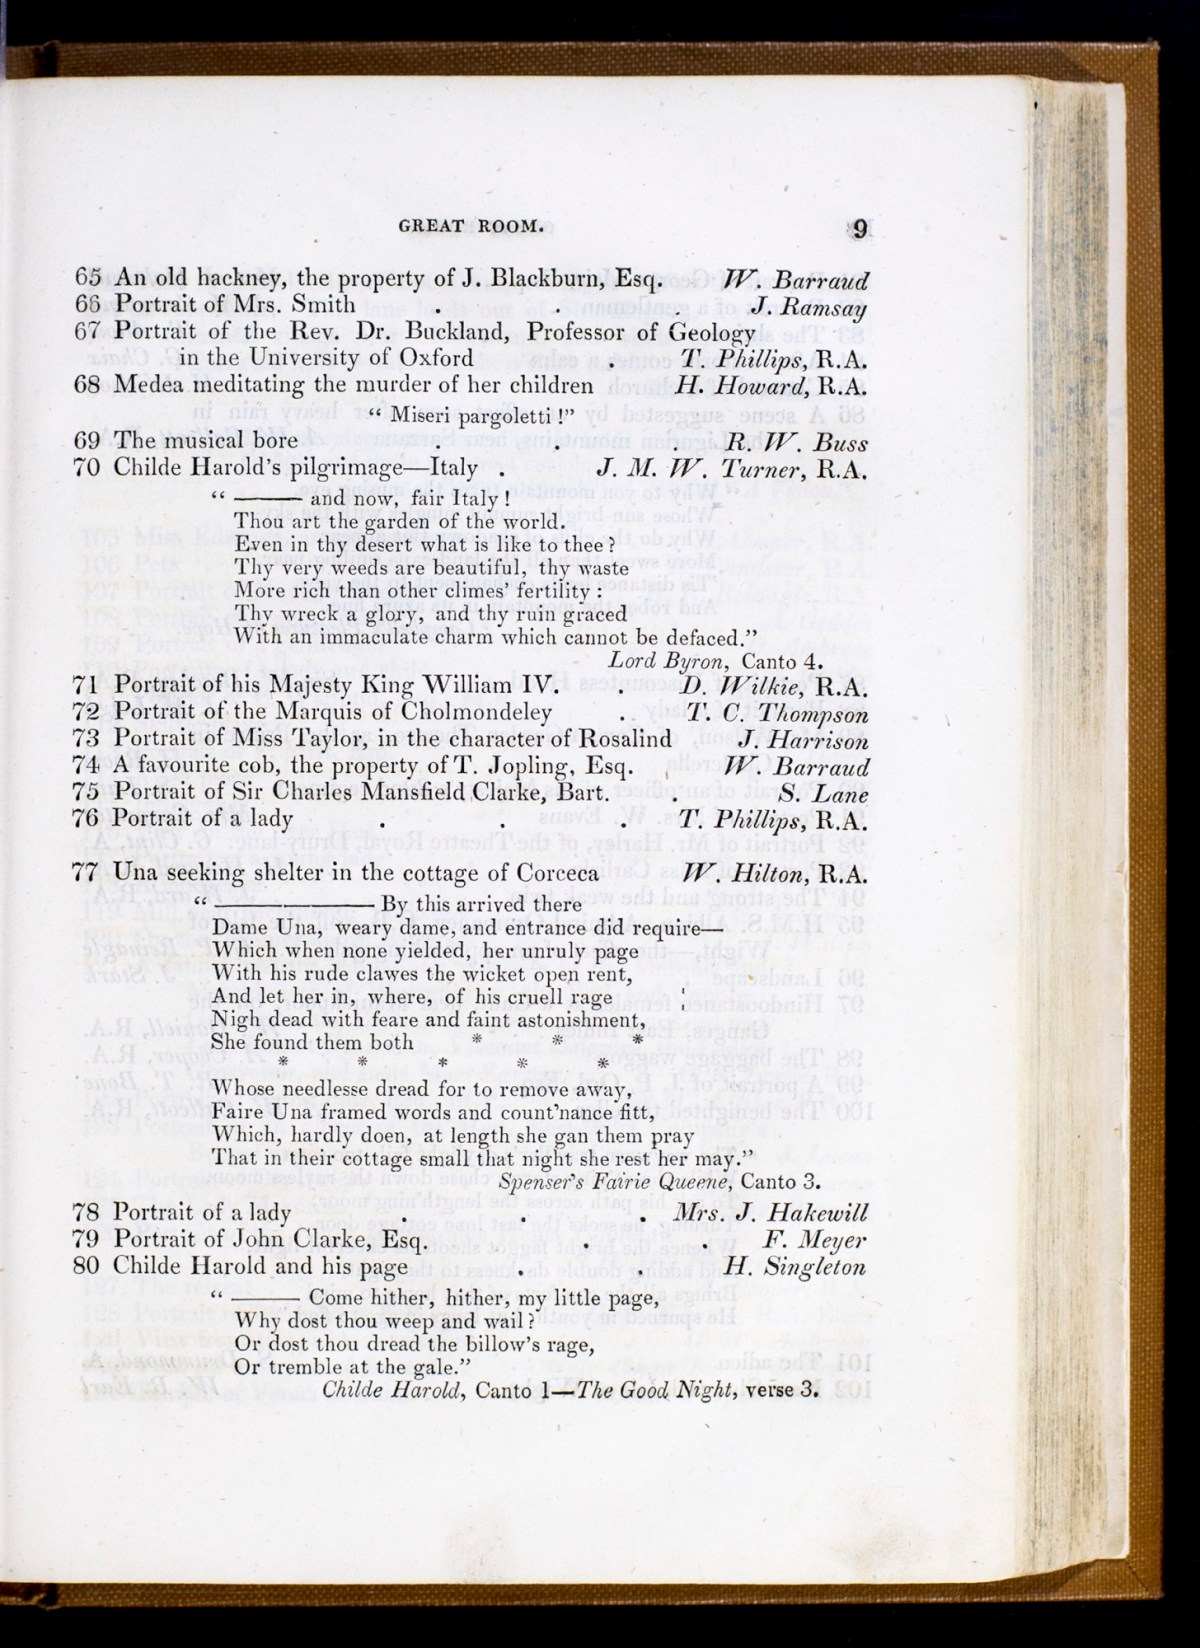 GREAT ROOM. 9
65 An old hackney, the property of J. Blackburn, Esq. W. Barraud
66 Portrait of Mrs. Smith . . . J. Ramsay
67 Portrait of the Rev. Dr. Buckland, Professor of Geology
in the University of Oxford . T. Phillips, R.A.
68 Medea meditating the murder of her children H. Howard, R.A.
“ Miseri pargoletti !”
69 The musical bore . . . R. W. Buss
70 Childe Harold’s pilgrimage—Italy . J. M. W. Turner, R.A.
“ ——— and now, fair Italy !
Thou art the garden of the world.
Even in thy desert what is like to thee ?
Thy very weeds are beautiful, thy waste
More rich than other climes’ fertility :
Thy wreck a glory, and thy ruin graced
With an immaculate charm which cannot be defaced.”
Lord Byron, Canto 4.
71 Portrait of his Majesty King William IV. . D. Wilkie, R.A.
72 Portrait of the Marquis of Cholmondeley . . T. C. Thompson
73 Portrait of Miss Taylor, in the character of Rosalind J. Harrison
74 A favourite cob, the property of T. Jopling, Esq. W. Barraud
75 Portrait of Sir Charles Mansfield Clarke, Bart. . S. Lane
76 Portrait of a lady . . . T. Phillips, R.A.
77 Una seeking shelter in the cottage of Corceca W. Hilton, R.A.
“ ——————— By this arrived there
Dame Una, weary dame, and entrance did require—
Which when none yielded, her unruly page
With his rude clawes the wicket open rent,
And let her in, where, of his cruell rage
Nigh dead with feare and faint astonishment,
She found them both * * *
* * * * *
Whose needlesse dread for to remove away,
Faire Una framed words and count’nance fitt,
Which, hardly doen, at length she gan them pray
That in their cottage small that night she rest her may.”
Spenser’s Fairie Queene, Canto 3.
78 Portrait of a lady . . . Mrs. J. Hakewill
79 Portrait of John Clarke, Esq. . . F. Meyer
80 Childe Harold and his page . . H. Singleton
“ ——— Come hither, hither, my little page,
Why dost thou weep and wail ?
Or dost thou dread the billow’s rage,
Or tremble at the gale.”
Childe Harold, Canto 1—The Good Night, verse 3.